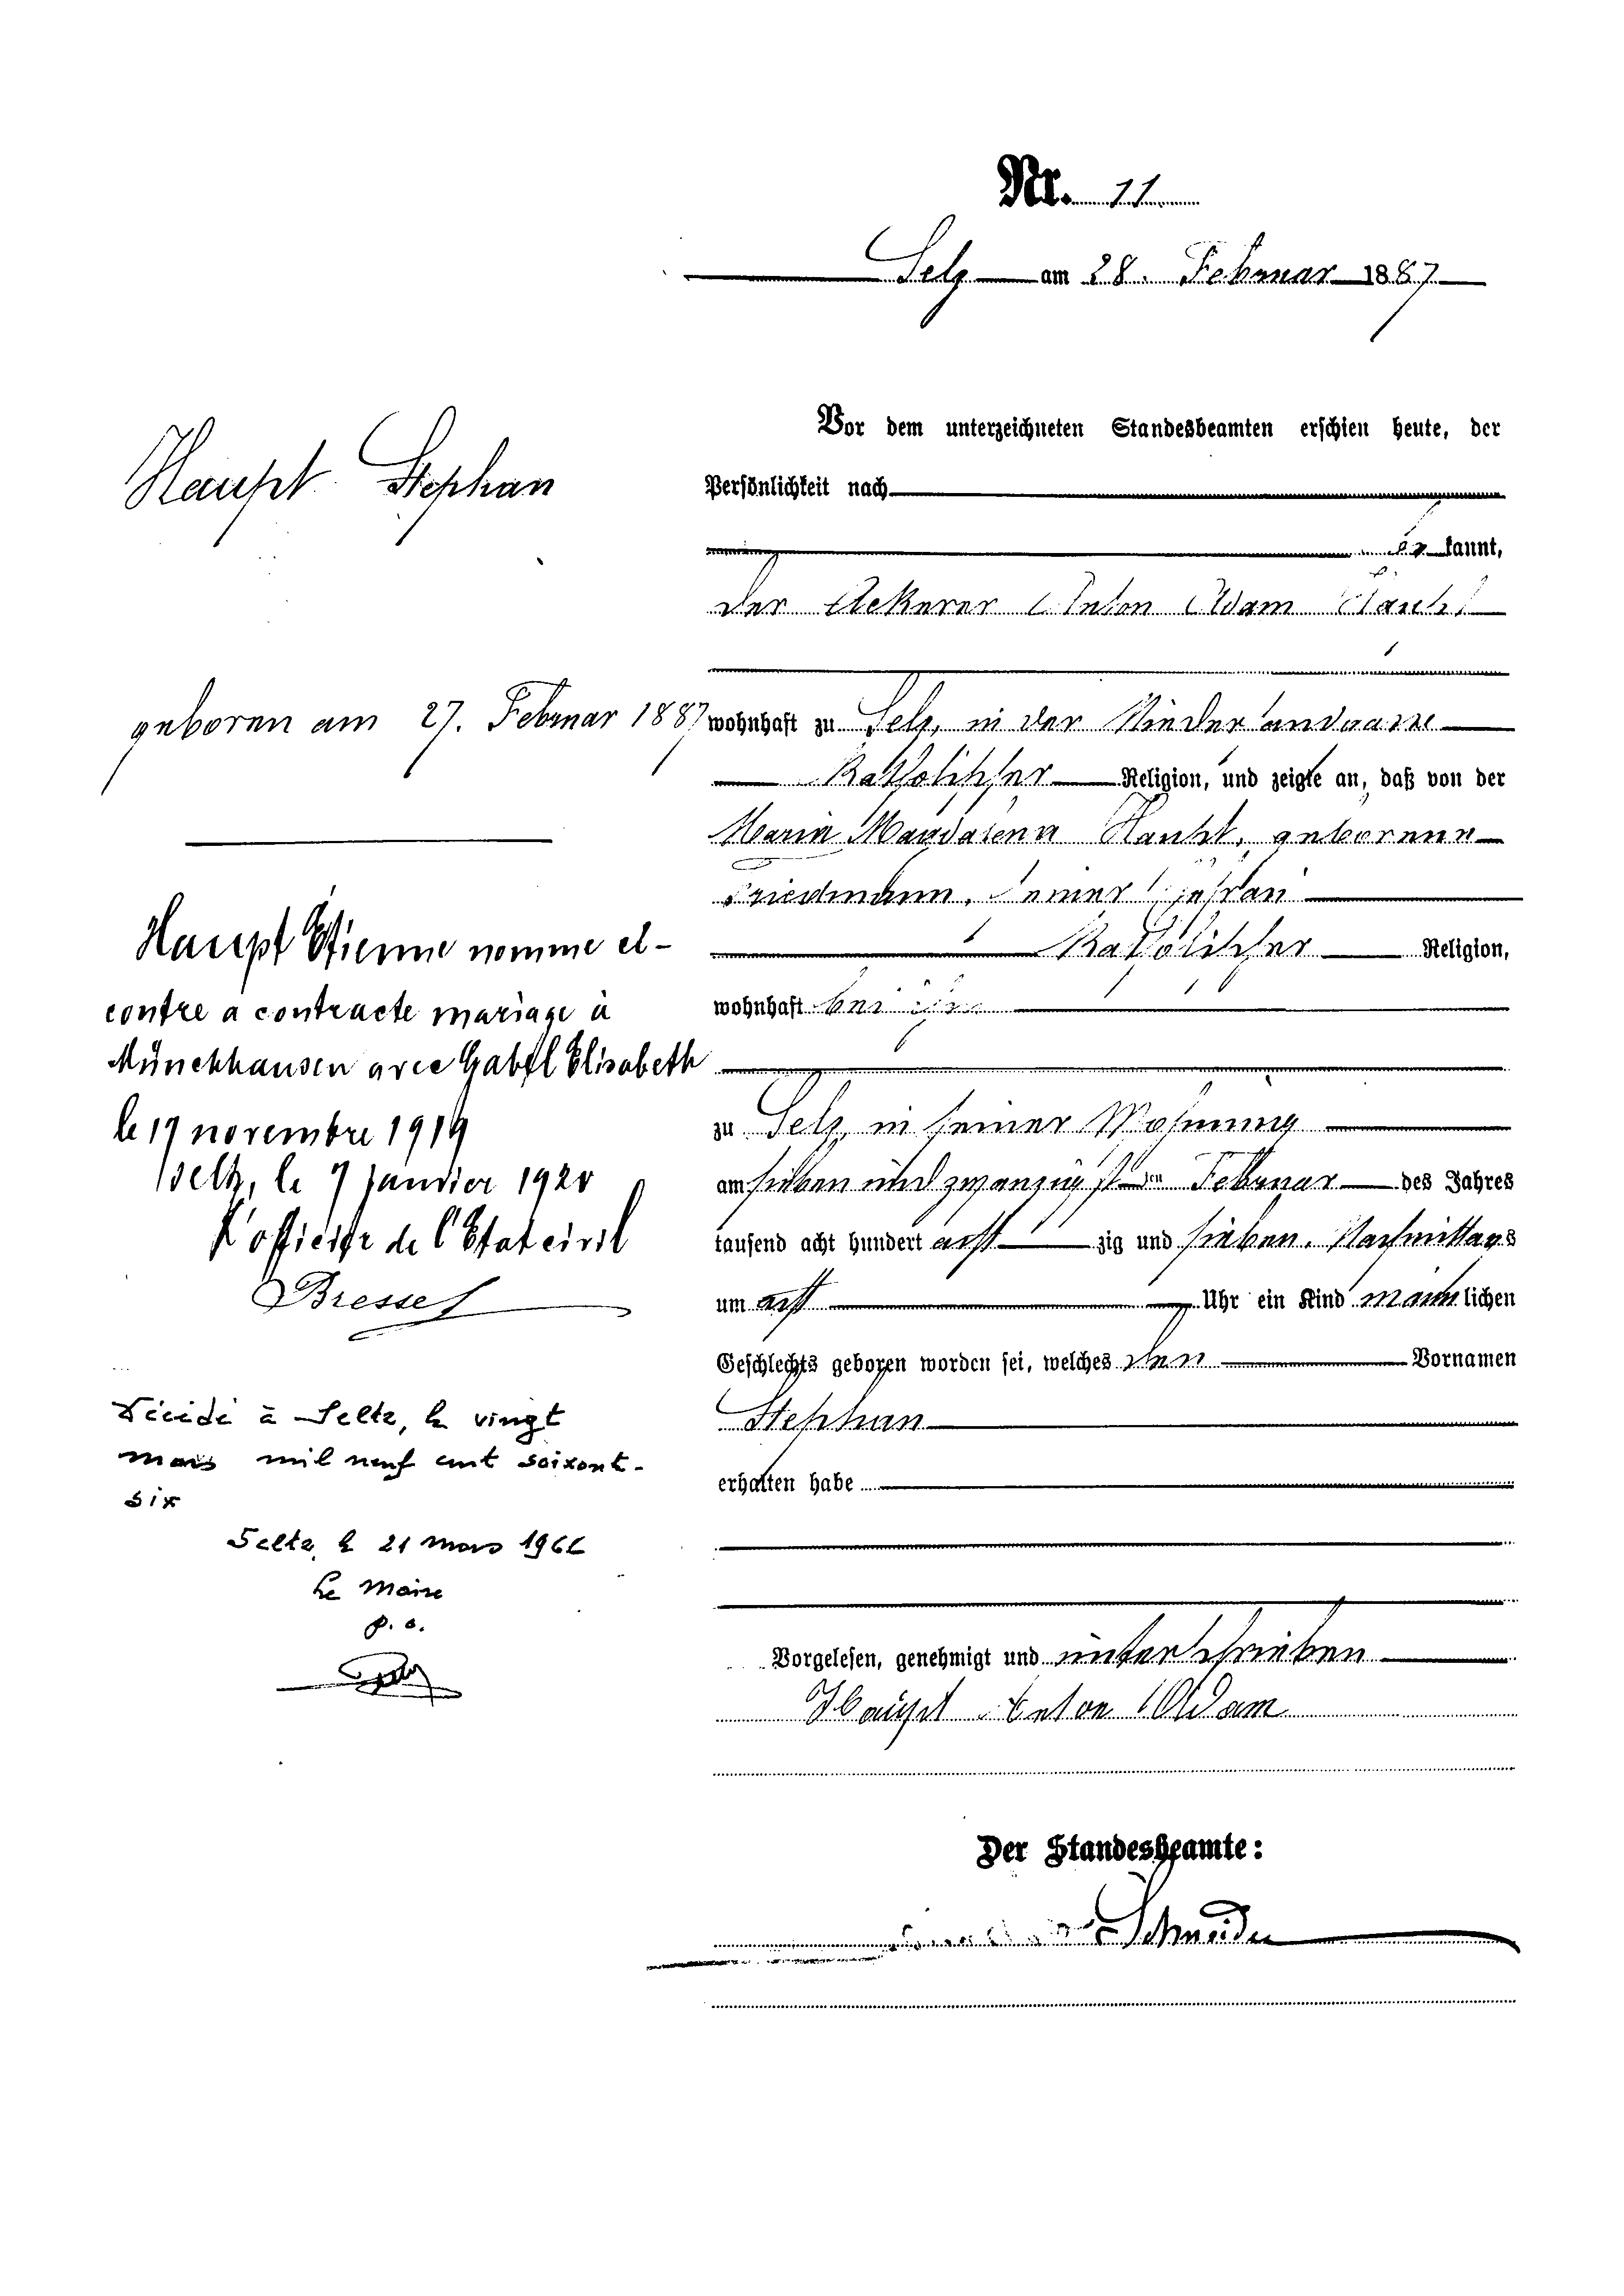 Nr. 11
Selz am 28. Februar 1887
Haupt Stephan
geboren am 27. Februar 1887
Haupt Étienne nomme ci-
contre a contracte mariage à
Münchhausen avec Gabel Elisabeth
le 19 novembre 1919
Seltz, le 7 janvier 1920
L'officier de l'Etat civil
Décédé à Seltz, le vingt
mars mil neuf cent soixant-
six
Seltz, le 21 mars 1966
Le Maire
Vor dem unterzeichneten Standesbeamten erschien heute, der
Persönlichkeit nach
be kannt,
der Ackerer Anton Adam Haupt
wohnhaft zu Selz, in der
Katholischer Religion, und zeigte an, daß von der
Maria Magdalena Haupt, geborene
Friedmann, seiner Ehefrau
Katholischer Religion,
wohnhaft bei ihm
zu Selz, in seiner Wohnung
am sieben und zwanzigsten Februar des Jahres
tausend acht hundert acht zig und sieben, Nachmittags
um acht Uhr ein Kind männlichen
Geschlechts geboren worden sei, welches den Vornamen
Stephan
erhalten habe
Vorgelesen, genehmigt und unterschrieben
Haupt Anton Adam
Der Standesbeamte:
Schneider